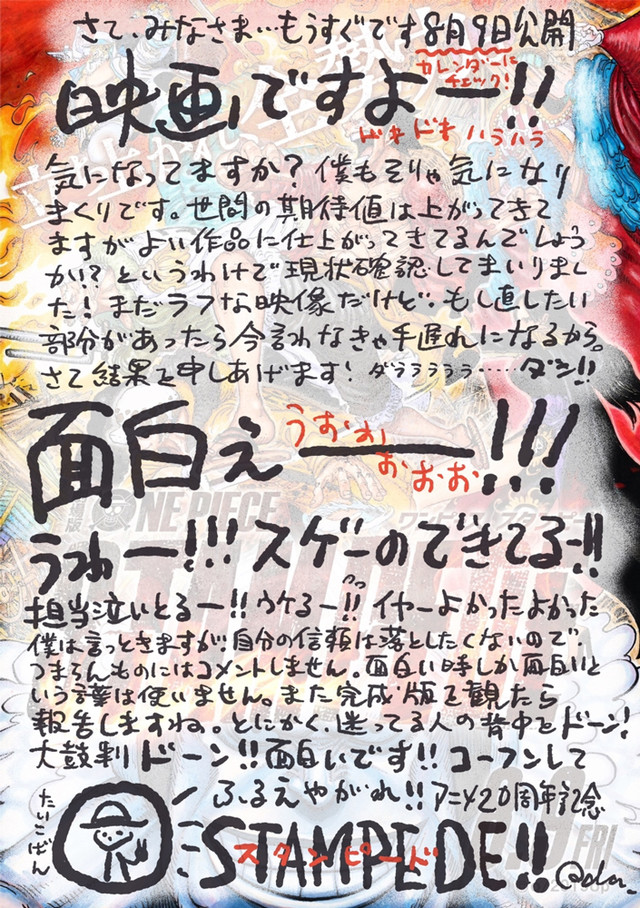 さて、みなさま…もうすぐです8月9日公開
カレンダーに
チェック!
映画ですよー!!
ドキドキ ハラハラ
気になってますか?僕もそりゃ気になり
まくりです。世間の期待値は上がってきて
ますがよい作品に仕上がってきてるんでしょう
か!?というわけで現状確認してまいりまし
た!まだラフな映像だけど、もし直したい
部分があったら今言わなきゃ手遅れになるから。
さて結果を申しあげます!ダララララララ……ダン!!
面白ぇーーー!!!
うおぉぉ
おおお
うわー!!!スゲーのできてるー!!
担当泣いとるー!!ウケるー!!イヤーよかったよかった
僕は言っときますが、自分の信頼は落としたくないので、
つまらんものにはコメントしません。面白い時しか面白いと
いう言葉は使いません。また完成版を観たら
報告しますね。とにかく、迷ってる人の背中をドーン!
太鼓判ドーン!!面白いです!!コーフンして
ふるえやがれ!!アニメ20周年記念
たいこばん
STAMPEDE!!
スタンピード
Oda
ONE PIECE
FRI